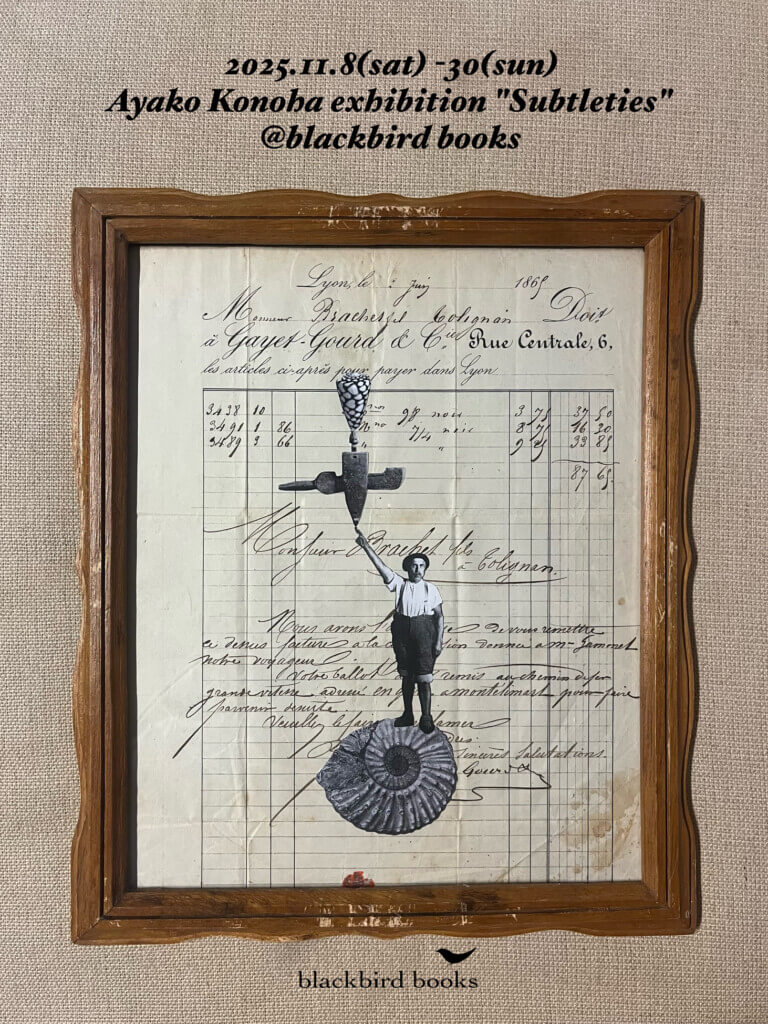 2025.11.8(sat) -30(sun)
Ayako Konoha exhibition "Subtleties"
@blackbird books
Lyon, le juin 1865
Monsieur Doit
à Gayet-Gourd & Cie. Rue Centrale, 6,
les articles ci-après pour payer dans Lyon
3438 10 9/8 noir 3 75 37 50
3491 1 86 7/4 noir 8 75 16 30
3489 3 66 " " 9 25 33 85
87 65
Monsieur Brachet fils
à Tolignan.
Nous avons de vous remettre
ce dessus facture à la donnée a mr
notre voyageur
Votre ballot remis au chemin de fer
grande vitesse, en a montelimart pour faire
parvenir
Veuillez
sincères salutations.
blackbird books